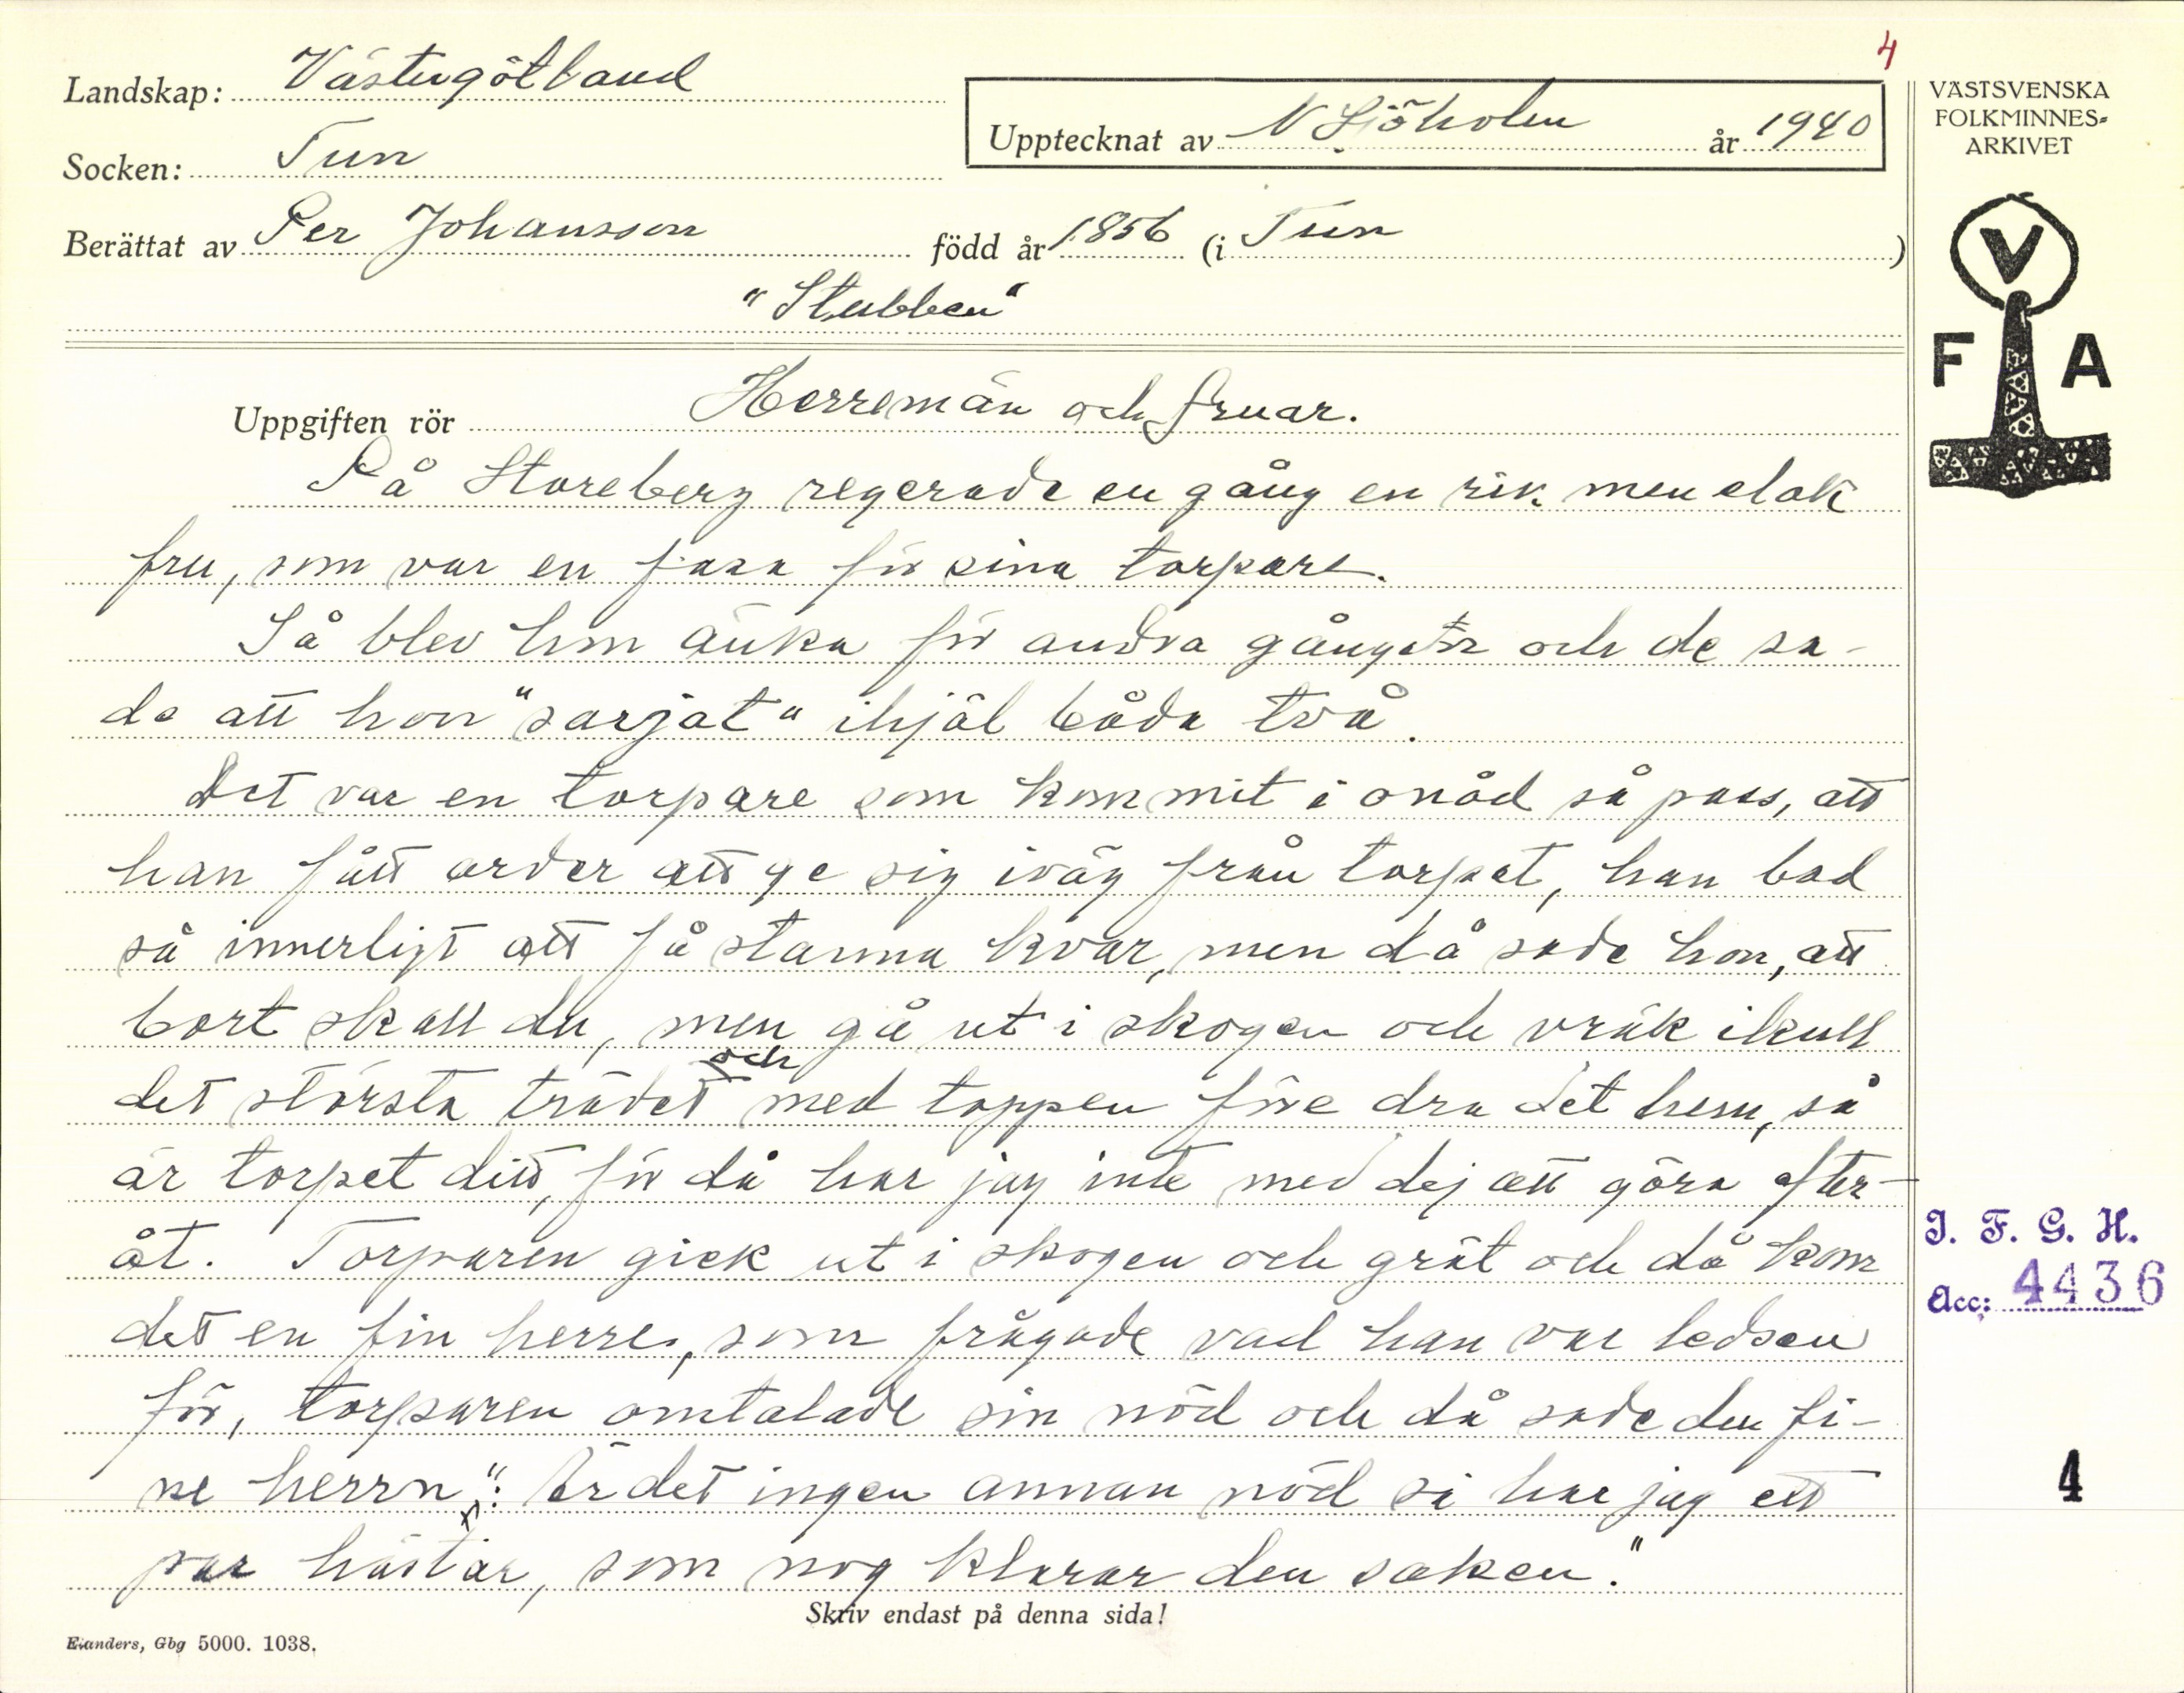 4
Landskap: Västergötland
VÄSTSVENSKA
FOLKMINNES-
ARKIVET
Upptecknat av N Sjöholm år 1940
Socken: Tun
Berättat av Per Johansson född år 1856 (i Tun)
"Stubben"
V
F A
Uppgiften rör Herremän och fruar.
På Storeberg regerade en gång en rik men elak
fru, som var en fasa för sina torpare.
Så blev hon änka för andra gången och de sa-
de att hon "sarjat" ihjäl båda två.
Det var en torpare som kommit i onåd så pass, att
han fått order att ge sig iväg från torpet, han bad
så innerligt att få stanna kvar, men då sade hon, att
bort skall du, men gå ut i skogen och vräk ikull
det största trädet och med toppen före dra det hem, så
är torpet ditt, för då har jag inte med dej att göra efter-
åt. Torparen gick ut i skogen och grät och då kom
det en fin herre, som frågade vad han var ledsen
för, torparen omtalade sin nöd och då sade den fi-
ne herrn: "Är det ingen annan nöd så har jag ett
par hästar, som nog klarar den saken."
Skriv endast på denna sida!
Elanders, Gbg 5000. 1038.
I. F. G. H.
Acc: 4436
4